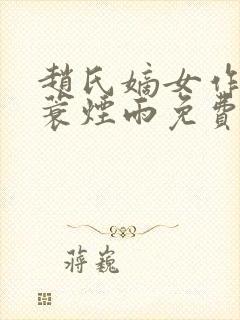 趙氏嫡女作
蓑煙雨免費
蔣巍